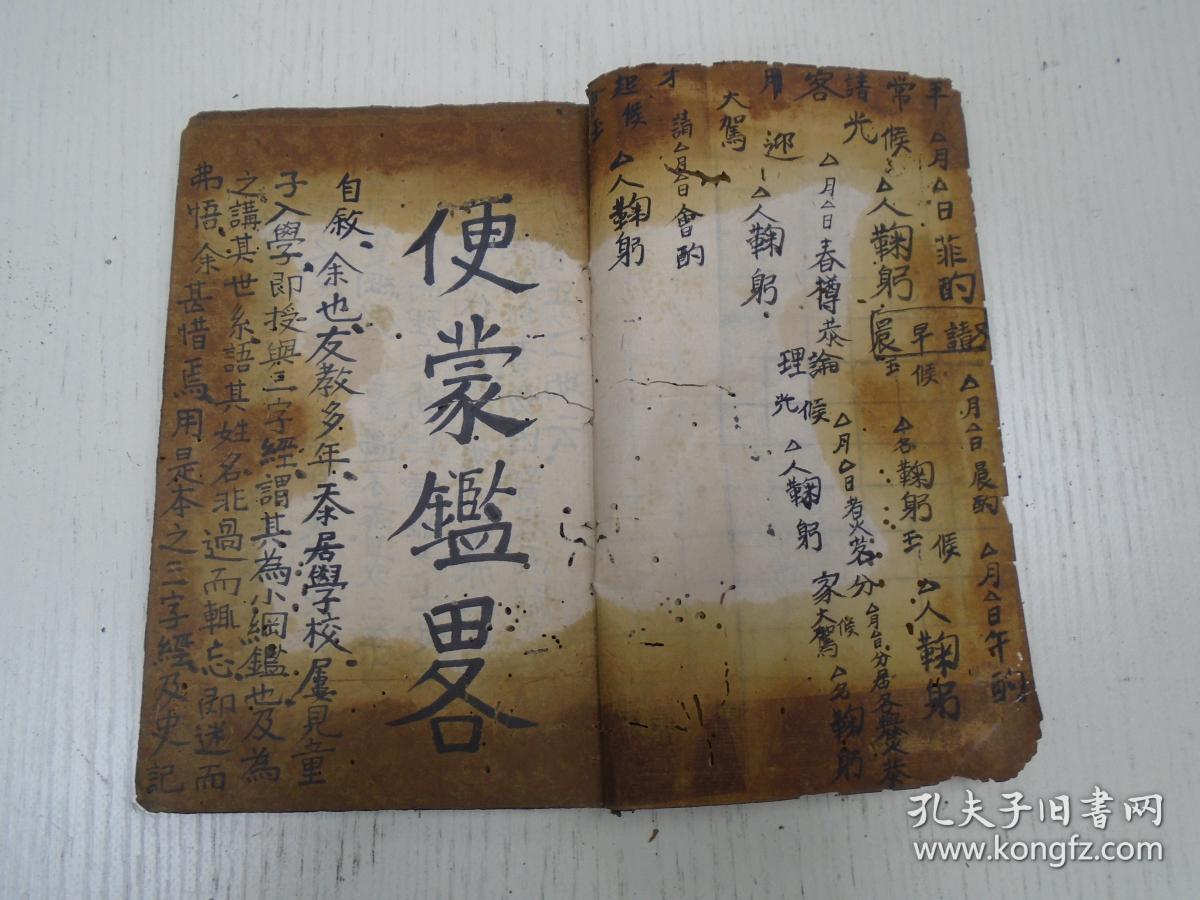 平常請客用
△月△日菲酌
候
光
△人鞠躬
早請
晨
候
玉
△名鞠躬
△月△日晨酌
候
玉
△人鞠躬
△月△日午酌
△月△日春樽恭
迎
大駕
△人鞠躬
論
理
候
光
△人鞠躬
△月△日煮茗分
家
候
大駕
△名鞠躬
△月△日分居各爨恭
才
請
△月△日會酌
起
候
△人鞠躬
便蒙鑑畧
自敘、余也友教多年、忝居學校、屢見童
子入學、即授與三字經、謂其為小綱鑑也、及為
之講其世系、語其姓名、非過而輒忘、即迷而
弗悟、余甚惜焉、用是本之三字經及史記
孔夫子旧书网
www.kongfz.com